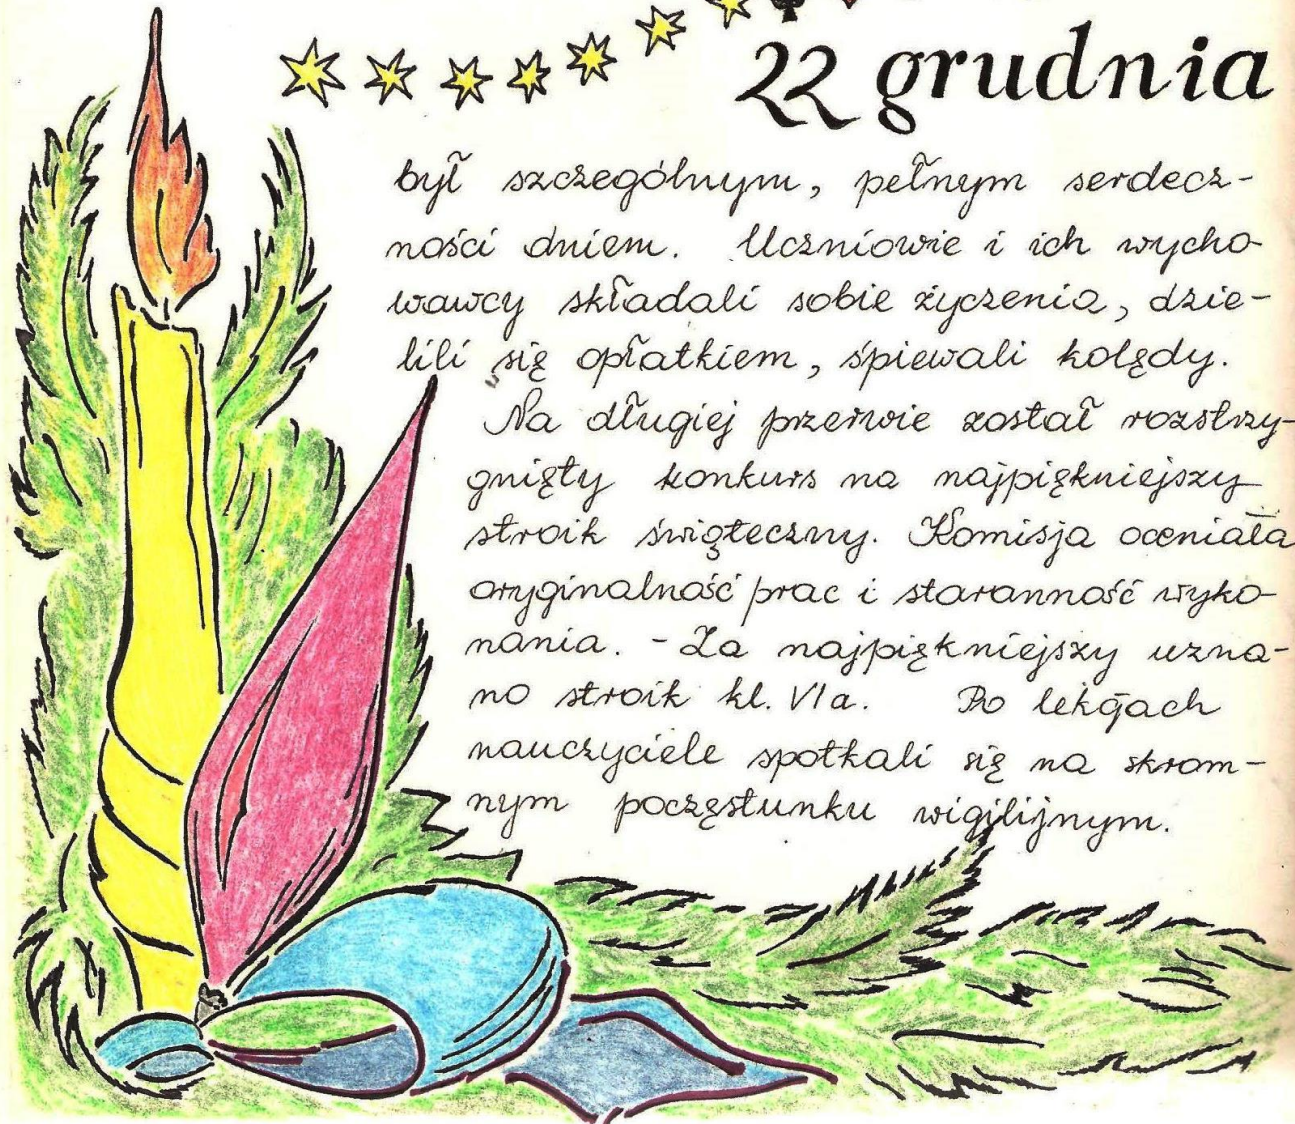 22 grudnia
był szczególnym, pełnym serdecz-
ności dniem. Uczniowie i ich wycho-
wawcy składali sobie życzenia, dzie-
lili się opłatkiem, śpiewali kolędy.
Na długiej przerwie został rozstrzy-
gnięty konkurs na najpiękniejszy
stroik świąteczny. Komisja oceniała
oryginalność prac i staranność wyko-
nania. - Za najpiękniejszy uzna-
no stroik kl. VIa. Po lekcjach
nauczyciele spotkali się na skrom-
nym poczęstunku wigilijnym.